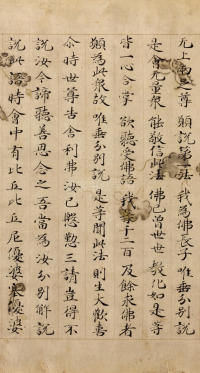 无上兩足尊 願說第一法 我為佛長子 唯垂分別說
是會无量衆 能敬信此法 佛已曾世世 教化如是等
皆一心合掌 欲聽受佛語 我等千二百 及餘求佛者
願為此衆故 唯垂分別說 是等聞此法 則生大歡喜
尒時世尊告舍利弗汝已慇懃三請豈得不
說汝今諦聽善思念之吾當為汝分別解說
說此語時會中有比丘比丘尼優婆塞優婆